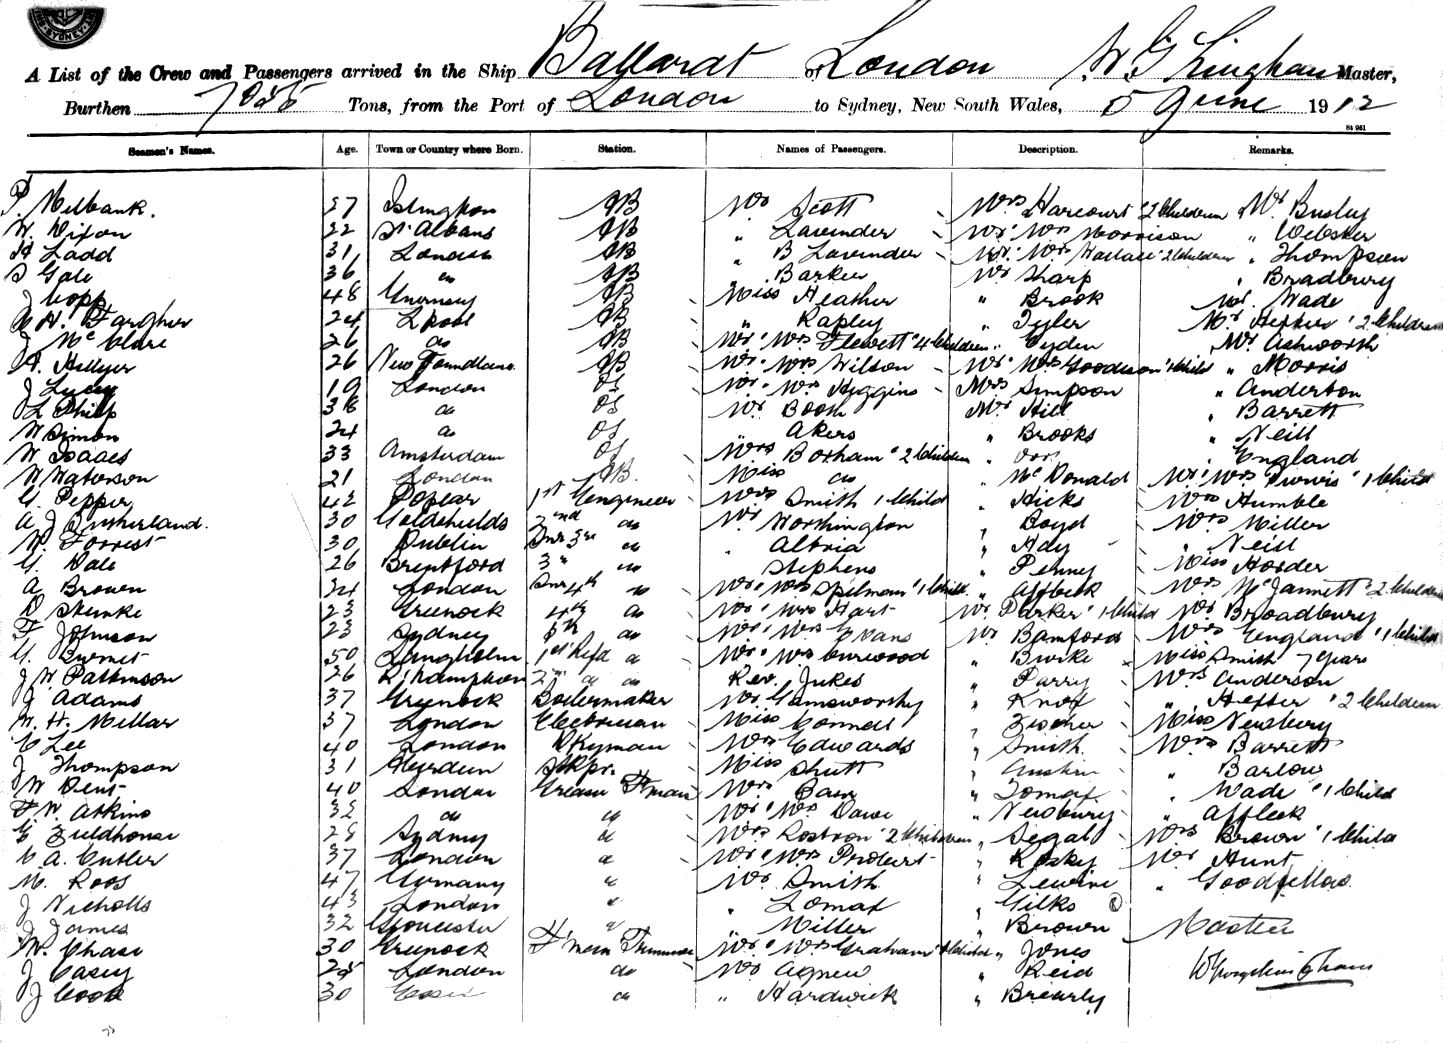 SYDNEY
A List of the Crew and Passengers arrived in the Ship Ballarat of London W G Lingham Master,
Burthen Tons, from the Port of London to Sydney, New South Wales, 5 June 1912
St 951
Seamen's Names. Age. Town or Country where Born. Station. Names of Passengers. Description. Remarks.
P. Milbank. 27 Islington AB Mrs Scott Mrs Harcourt "2 Children Mr Busby
W. Dixon 22 St Albans AB " Lavinder Mr. Mrs Morrison " Webster
H Ladd 31 London AB " B Lavinder Mr. Mrs Wallace "2 Children " Thompson
S Gale 36 do AB " Barker Mr Sharp " Bradbury
J Copp 48 Guernsey AB Miss Heather " Brook Mr. Wade
H. Fargher 24 Lpool AB " Rapley " Tyler Mrs Hefter "2 Children
J Mc Clure 26 do AB Mr. Mrs Flewett "4 Children " Eyden Mr Ashworth
H. Hillyer 26 New Foundland AB Mr. Mrs Wilson Mr. Mrs Goodison "1 Child " Morris
J Lucy 19 London OS Mr. Mrs Higgins Mrs Simpson " Anderton
L Philp 38 do OS Mr Booth Mr Hill " Barrett
W Simon 24 do OS " Akers " Brooks " Neill
W Isaacs 33 Amsterdam OS Mrs Boxham "2 Children " Orr " England
W Waterson 21 London AB. Miss do " Mc Donald Mr. Mrs "1 Child
G. Pepper 42 Poplar 1st Engineer Mrs Smith 1 Child " Hicks Mrs Humble
A J Sutherland. 30 2nd do Mr Worthington " Boyd Mrs Miller
W. Forrest 30 Dublin Jnr 3rd do " Altria " Ady " Neill
G. Dale 26 Brentford 3rd do Stephens " Penny Miss Horder
A Brown 24 London Snr 4th do Mr. Mrs Spilman "1 Child " Affleck Mrs Mc Jannett "2 Children
D Skinke 23 Greenock 4th do Mr. Mrs Hart Mr Parker "1 Child Mr Broadbury
F Johnson 23 Sydney 5th do Mr. Mrs Evans Mr Bamford Mrs England "1 Child
G. Burnet 50 Langholm 1st Refd do Mr. Mrs Curwood " Burke Miss Smith 7 years
J W Pattinson 26 2nd do do Rev. Jukes " Parry Mrs Anderson
J Adams 37 Greenock Boilermaker Mr Gamsworthy " Knox " Hefter "2 Children
W. H. Millar 37 London Electrician Miss Connell " Fischer Miss Newbury
C Lee 40 London Dkyman Mrs Edwards " Smith Mrs Barrett
J Thompson 31 Aberdeen Stkpr. Miss Shutt " Austin " Barlow
W Bent 40 London Greaser F'man Mrs Bain " Lomax " Wade "1 Child
F. W. Atkins 32 do do Mr. Mrs Dawe " Newbury " Affleck
E Fieldhouse 28 Sydney do Mrs Rostron "2 Children " Segal Mrs Brown "1 Child
C A. Cutler 37 London do Mr. Mrs Probert " Kosky Mr Hunt
M. Roos 47 Germany " Mr Smith " Lewine " Goodfellow
J Nicholls 43 London " " Lomax " Gilks
J James 32 Gloucester " Miller " Brown Master
W. Chase 30 Greenock F'man Trimmer Mr. Mrs Graham " Child " Jones
J Casey 28 London do Mrs Agnew " Reid
J Cook 30 Essex do " Hardwick " Brierly